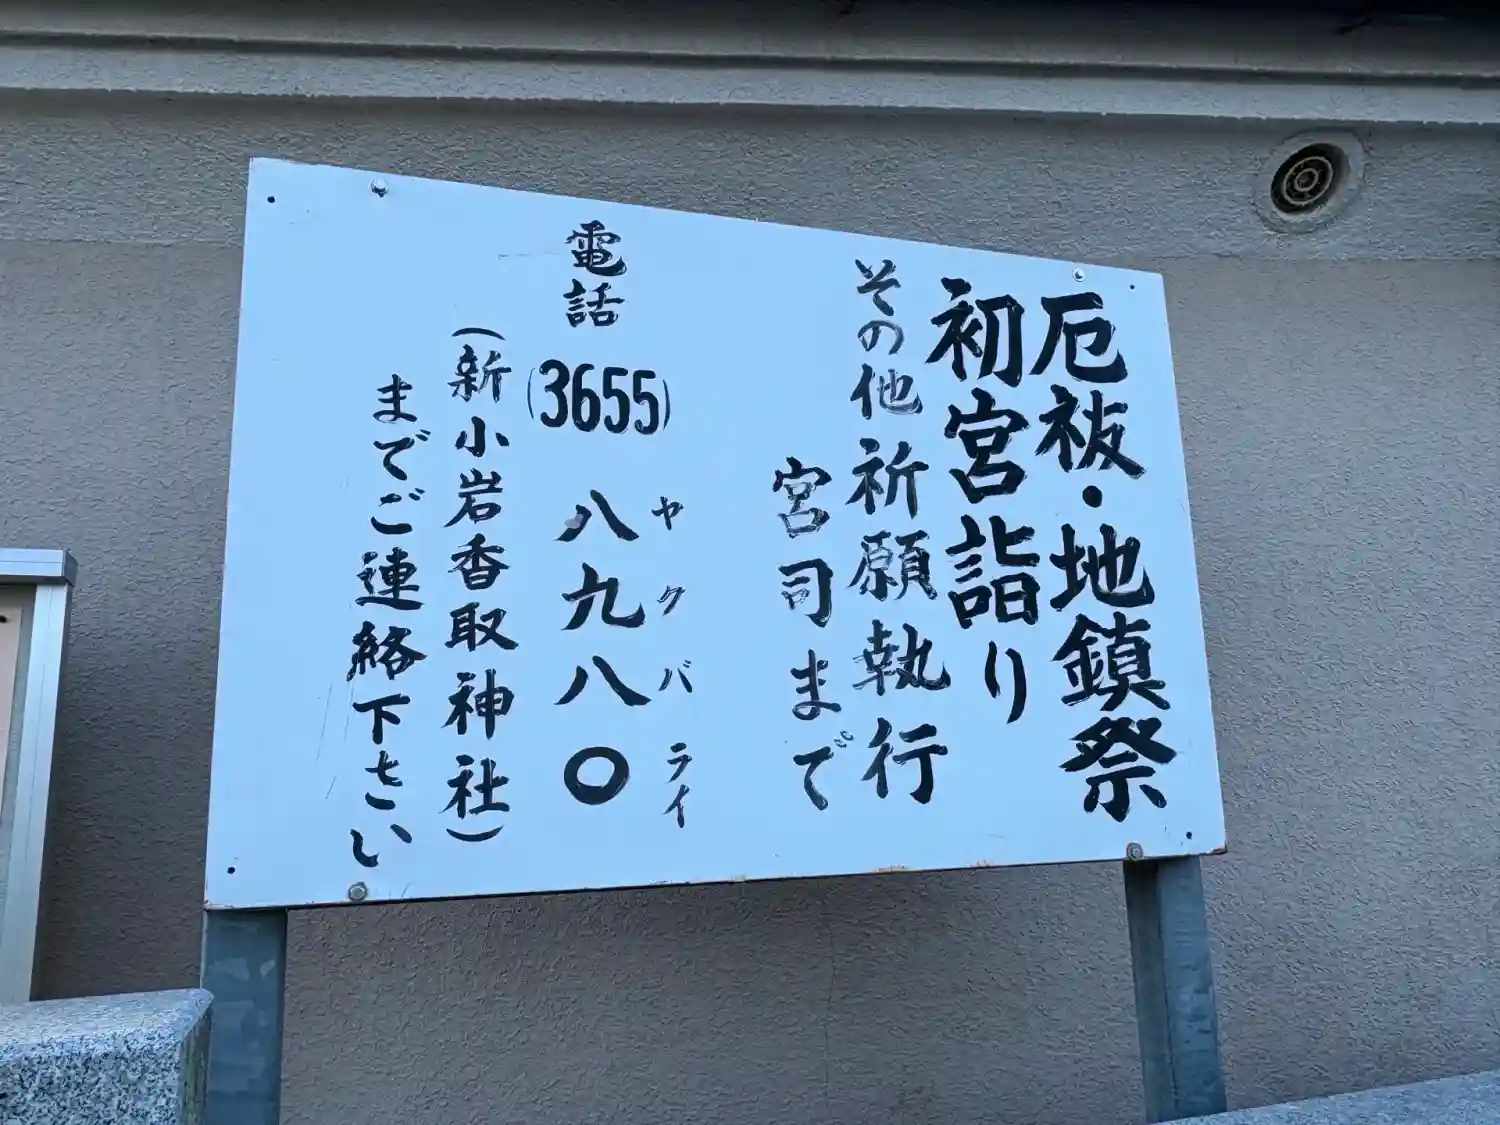 厄祓・地鎮祭
初宮詣り
その他祈願執行
宮司まで
電話(3655)八九八〇
ヤクバライ
(新小岩香取神社)
までご連絡下さい